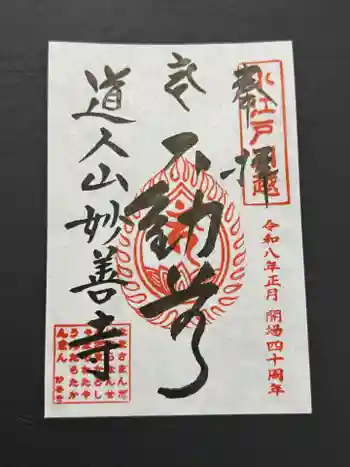 奉拝
小江戸川越
令和八年正月 開場四十周年
不動尊
道人山妙善寺